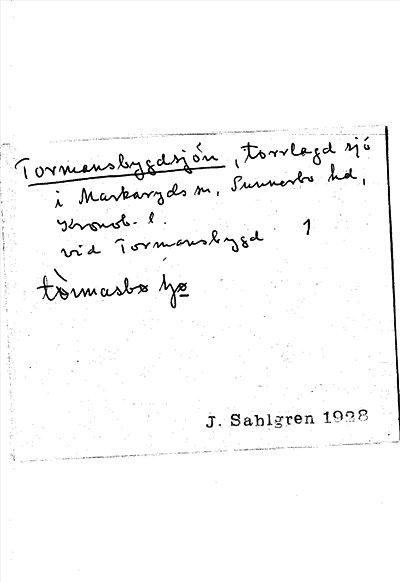 Tormansbygdsjön, torrlagd sjö
i Markaryds sn, Sunnerbo hd,
Kronob. l.
vid Tormansbygd 1
tòrmasbø
J. Sahlgren 1928